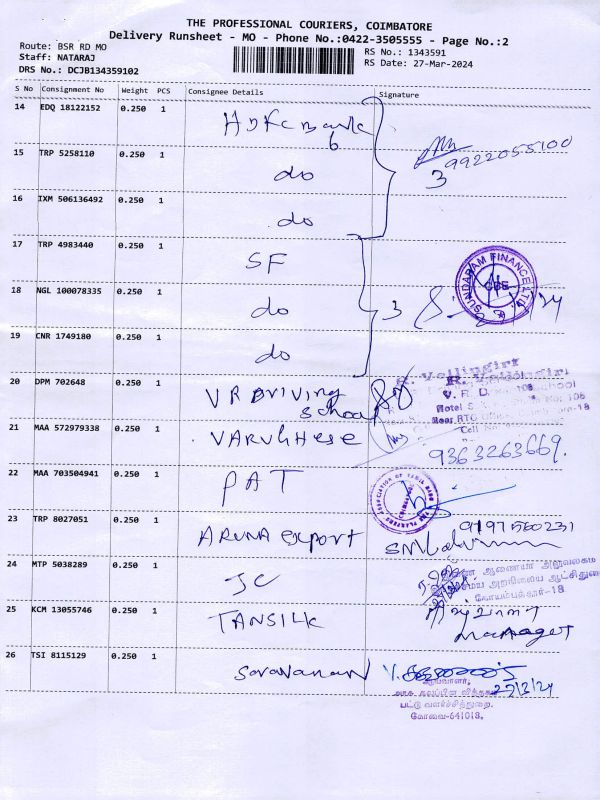 THE PROFESSIONAL COURIERS, COIMBATORE
Delivery Runsheet - MO - Phone No.:0422-3505555 - Page No.:2
Route: BSR RD MO
Staff: NATARAJ
DRS No.: DCJB134359102
RS No.: 1343591
RS Date: 27-Mar-2024
S No Consignment No Weight PCS Consignee Details Signature
14 EDQ 18122152 0.250 1 HDFC Bank
6
9922055100
3
15 TRP 5258110 0.250 1 do
16 IXM 506136492 0.250 1 do
17 TRP 4983440 0.250 1 SF
SUNDARAM FINANCE LTD.
CBE
18 NGL 100078335 0.250 1 do 3
19 CNR 1749180 0.250 1 do
20 DPM 702648 0.250 1 VR Driving School
R. Vellingiri
21 MAA 572979338 0.250 1 VARUGHESE
9363263669.
22 MAA 703504941 0.250 1 PAT
23 TRP 8027051 0.250 1 ARUNA export
9197560231
24 MTP 5038289 0.250 1 JC
கோயம்புத்தூர்-18
25 KCM 13055746 0.250 1 TANSILK
Manager
26 TSI 8115129 0.250 1 Saravanan
27/3/24
பட்டு வளர்ச்சித்துறை,
கோவை-641018.